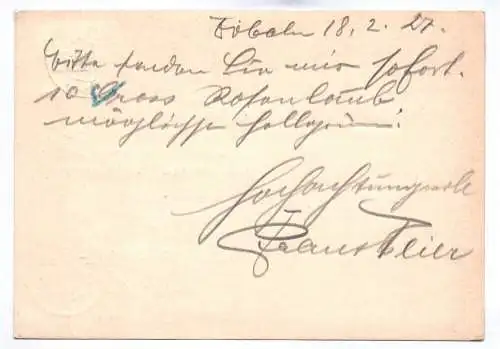 Döbeln 18.2.27.
bitte senden Sie mir sofort.
10 Gross Rosenlaub
möglichst hellgrün.
Hochachtungsvoll